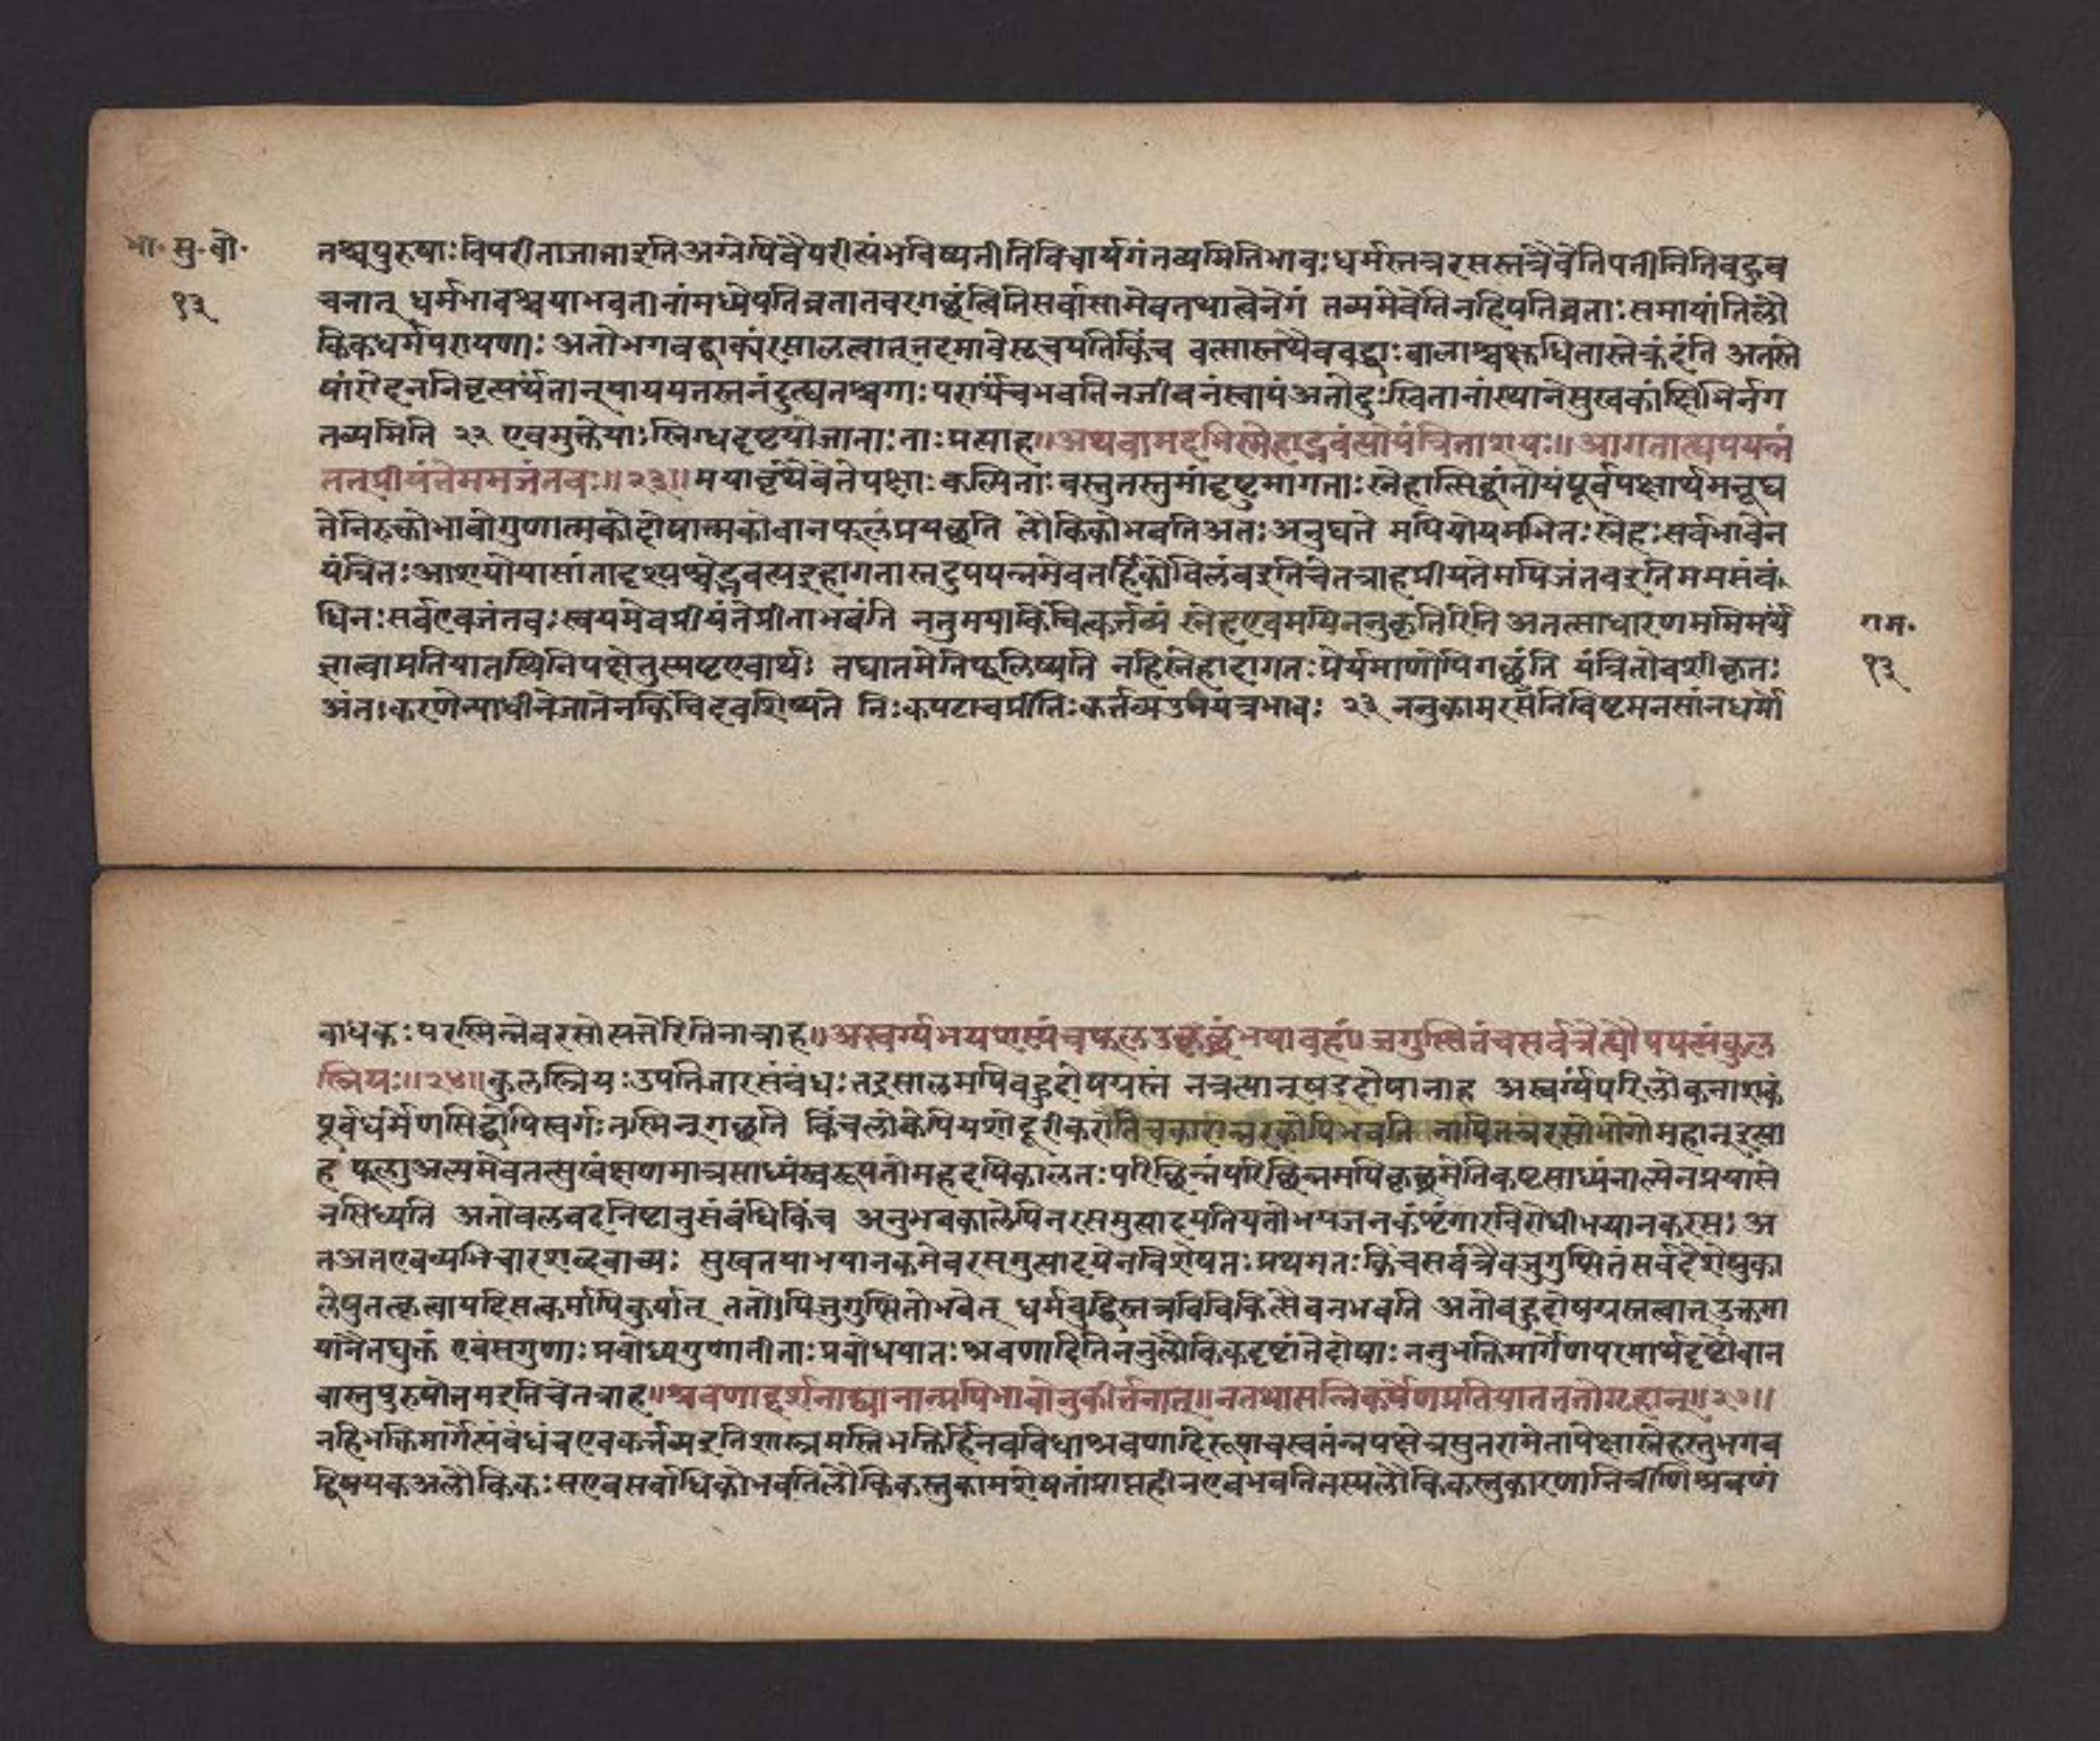 भा. सु. बो.
१३
तश्चपुरुषाः विपरीताजाताइतिअग्नेपिवैपरीत्यंभविष्यतीतिविचार्यगंतव्यमितिभावः धर्मस्तत्ररसस्तत्रैवेतिपतीनितिबहुव
चनात् धर्मभावश्चयाभवतीनांमध्येपतिव्रतातवरगछंत्वितिसर्वासामेवतथात्वेनेगं तव्यमेवेतिनहिपतिव्रताः समायांतिलौ
किकधर्मपरायणाः अतोभगवद्वाक्यंरसालत्वात्तदमावेसूचयतिकिंच वत्सास्तथैवबद्धाः बालाश्चक्षुधितास्तेक्रंदंति अतस्ते
षांरोदननिवृत्यर्थंतान्पाययतस्तनंदुत्धतश्चगाः परार्थंचभवतिनजीवनंस्वापंअतोदुःखितानांस्थानेसुखकांक्षिभिर्नग
तव्यमिति २२ एवमुक्तेयाः स्निग्धदृष्टयोजाताः ताः प्रत्याह॥अथवामदभिस्नेहाद्भवंत्योयंत्रिताशयः॥ आगतात्युपपन्नं
तत्प्रीयंतेममजंतवः॥२३॥मयावृथैवेतेपक्षाः कल्पिताः वस्तुतस्तुमांदृष्टुमागताः स्नेहात्सिद्धांतोयंपूर्वपक्षार्थमनूघ
तेनिरुक्तोभावोगुणात्मकोदोषात्मकोवानफलंप्रयछति लौकिकोभवतिअतः अनुघते मपियोयमभितः स्नेहः सर्वभावेन
यंत्रितः आशयोयासांतादृश्यश्चेद्भवत्यइहागतास्तदुपपन्नमेवतर्हिकोविलंबइतिचेतत्राहप्रीयतेमपिजंतवइतिममसंबं
धिनः सर्वएवजंतवः स्वयमेवप्रीयंतेप्रीताभवंति ननुमयाकिंचित्कर्तव्यं स्नेहएवमयिननुकृतिरिति अतत्साधारणममिमर्थं
ज्ञात्वाप्रतियातस्थितिपक्षेतुस्पष्टएवार्थः तघातमेतिफलिष्यति नहिस्नेहादागतः प्रेर्यमाणोपिगछंति यंत्रितोवशीकृतः
अंतःकरणेत्पाधीनेजातेनकिंचिदवशिष्यते निःकपटाचप्रीतिः कर्तव्यउभयत्रभावः २३ ननुकामरसेनिविष्टमनसांनधर्मो
राम.
१३
बाधकः परस्मिन्नेवरसोत्पत्तेरितितत्राह॥अस्वर्ग्यमयशस्यंचफल्गुकृछ्रंभयावहं॥जुगुप्सितंचसर्वत्रैत्यौपपत्यंकुल
स्त्रियः॥२४॥कुलस्त्रियः उपपतिजारसंबंधः तद्रसालमपिबहुदोषग्रस्तं तत्रत्यान्षड्दोषानाह अस्वर्ग्यंपरिलोकनाशकं
पूर्वधर्मेणसिद्धोपिस्वर्गः तस्मिन्गछति किंचलोकेपियशोदूरीकरोतिचकारान्नरकोपिभवति नापितत्ररसोभोगोमहान्इत्या
ह फल्गुअल्पमेवतत्सुखंक्षणमात्रसाध्यंस्वरूपतोमहदपिकालतः परिछिन्नंपरिछिन्नमपिकृछ्रमेतिकष्टसाध्यंनाल्पेनप्रयासे
नसिध्यति अतोबलवदनिष्टानुसंबंधिकिंच अनुभवकालेपिनरसमुत्पादयतियतोभयजनकंशृंगारविरोधीभयानकरसः अ
तअतएवव्यभिचारशब्दवाच्यः सुखतयाभयानकमेवरसमुत्पादयेनविशेषतः प्रथमतः किंचसर्वत्रैवजुगुप्सितंसर्वदेशेषुका
लेषुतत्कृत्वायदिसत्कर्मापिकुर्यात् ततोऽपिजुगुप्सितोभवेत् धर्मबुद्धिस्तत्रविचिकित्सैवनभवति अतोबहुदोषग्रस्तत्वात्उत्तमा
यांनैतघुक्तं एवंसगुणाः प्रबोध्यगुणातीताः प्रबोधयातः श्रवणादितिननुलौकिकदृष्टांतेदोषाः ननुभक्तिमार्गेणपरमार्थदृष्टौवान
वास्तुपुरुषोत्तमइतिचेतत्राह॥श्रवणाद्दर्शनाद्ध्यानान्मयिभावोनुकीर्तनात्॥नतथासन्निकर्षेणप्रतियातततोगृहान्॥२७॥
नहिभक्तिमार्गेत्संबंधंचएवकर्तव्यइतिशास्त्रमस्तिभक्तिर्हिनवविधाश्रवणादिरूपाचस्वतंत्रपक्षेत्रसुतरामेतापेक्षास्नेहस्तुभगव
द्विषयकअलौकिकः सएवसर्वाधिकोभवतिलौकिकस्तुकामशेषतांप्राप्तहीनएवभवतितस्यलौकिकस्तुकारणानित्रीणिश्रवणं